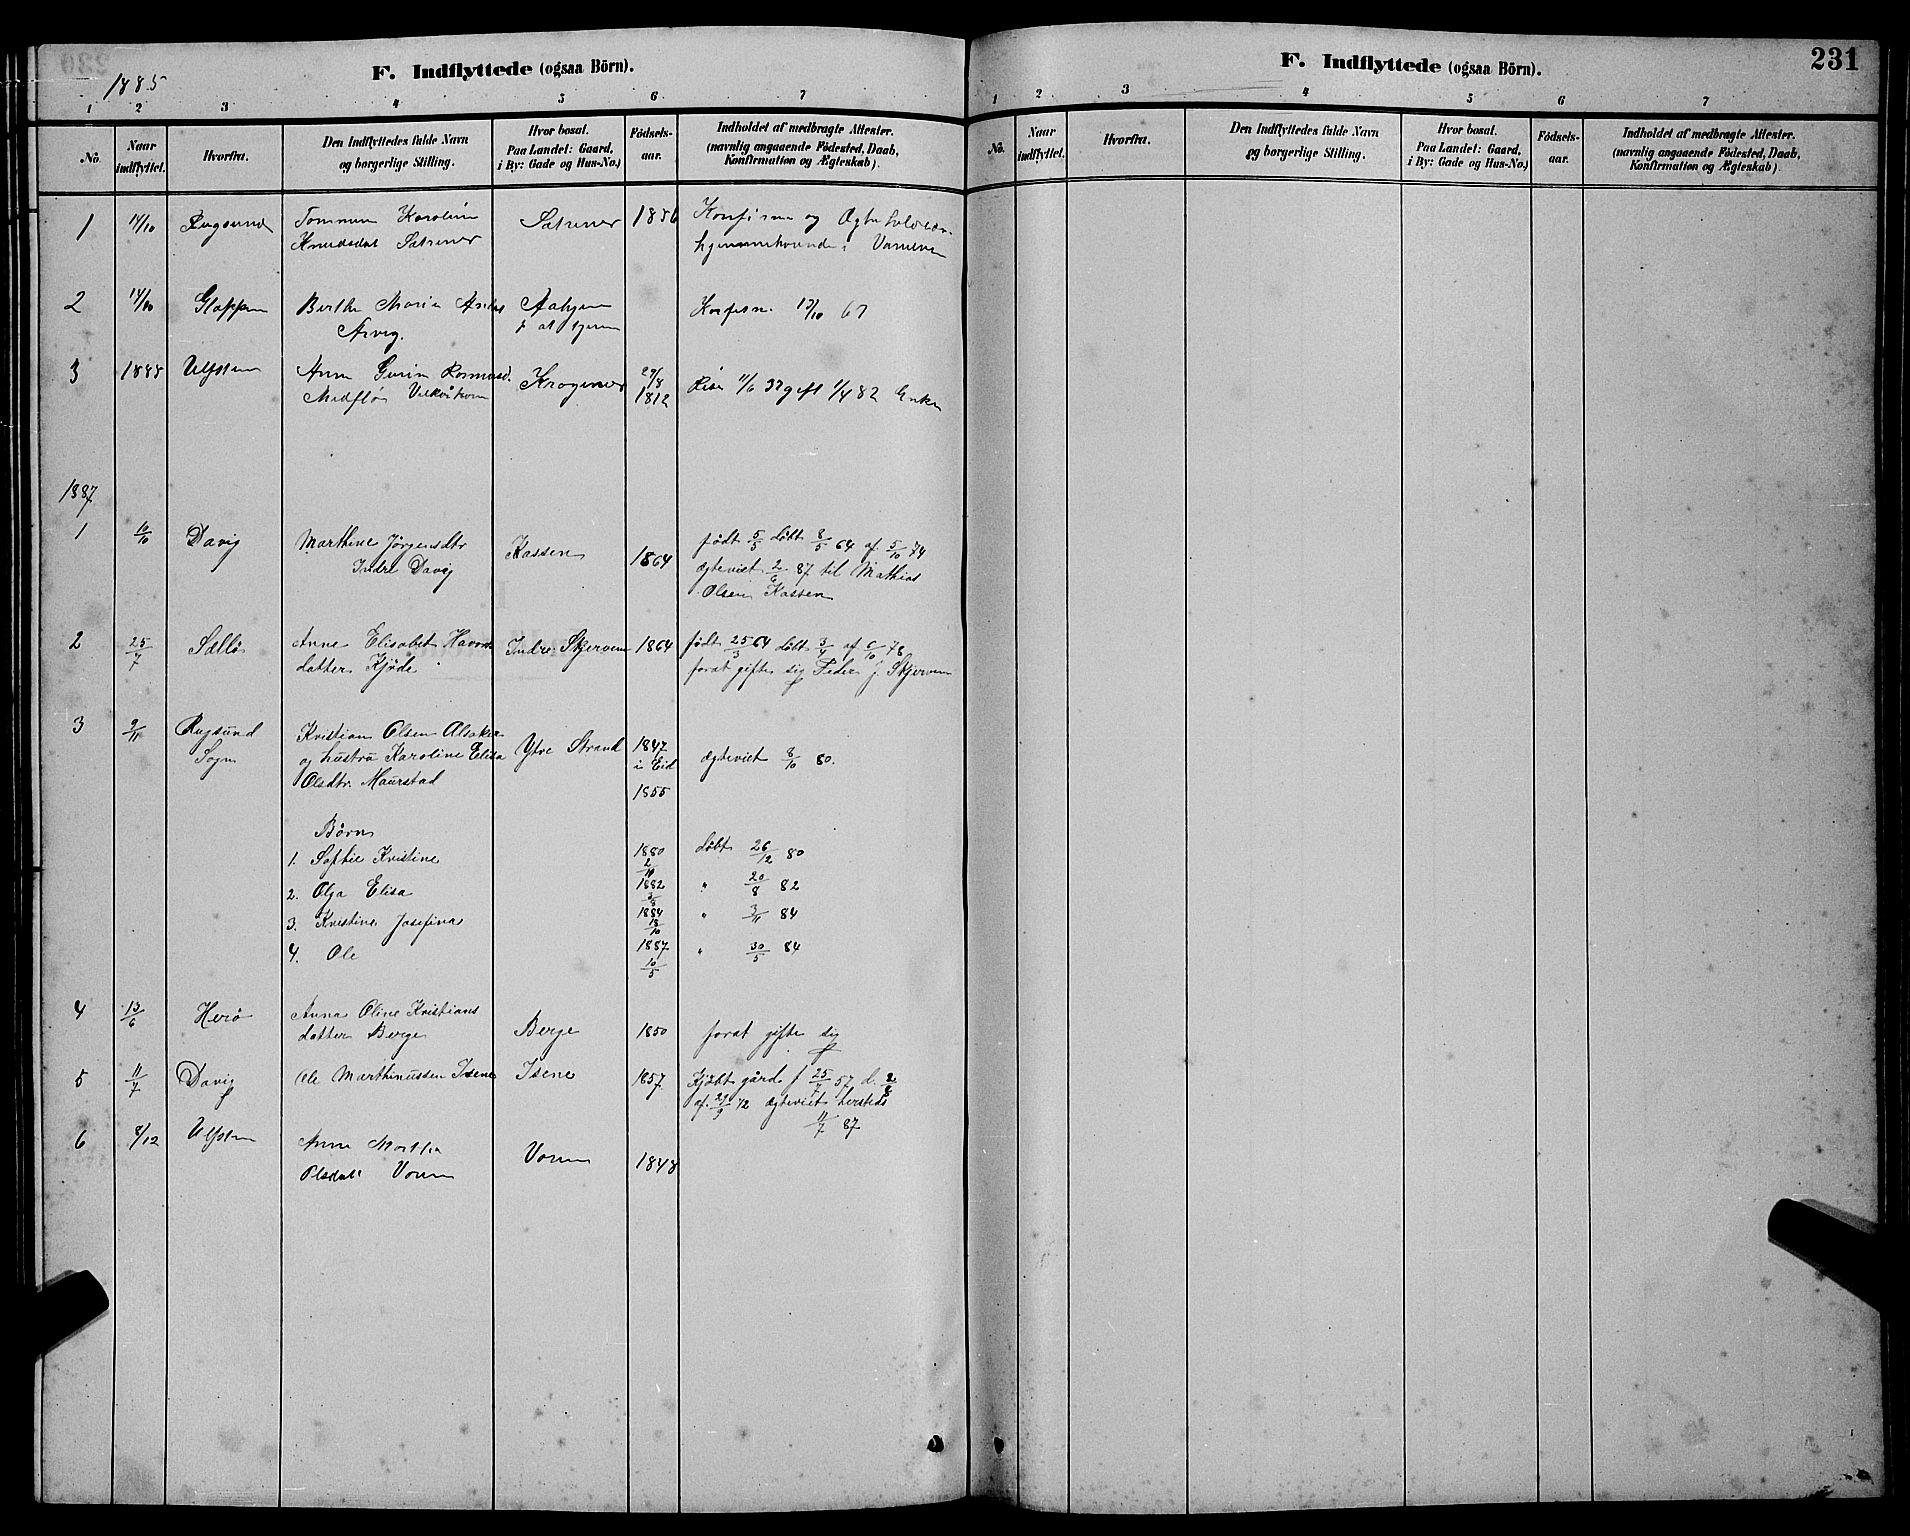 F. Indflyttede (ogsaa Börn).
1885
1 2 3 4 5 6 7
No. Naar indflyttet. Hvorfra. Den Indflyttedes fulde Navn og borgerlige Stilling. Hvor bosat. Paa Landet: Gaard, i By: Gade og Hus-No.) Födsels-aar. Indholdet af medbragte Attester. (navnlig angaaende Födested, Daab, Konfirmation og Ægteskab).
1 14/10 Rugsund Karoline Sætrener 1856 Konfirm og
Knudsdat Sætrener
2 14/10 Gloppen Berthe Marie Konfirm. 13/10 67
3 1885 Ulfsten Anne 27/8 1812 37 gift 1/4 82 Enke
1887
1 10/10 Davig Marthine Jörgensdtr Kassen 1864 født 5/5 døbt 8/5 64 af 5/10 74
Indre Davig ægteviet 2/6 87 til Mathias
Olsen Kassen
2 25/7 Sællø Anne Elisabet Indre Skjerven 1864 født 25/3 64 døbt 3/4 af 6/10 78
datter Kjøde forat gifte sig Peder J. Skjerven
3 9/11 Rugsund Kristian Olsen Alsaker Ytre Strand 1847
Sogn og hustru Karoline Elisa i Eid ægteviet 8/10 80.
Olsdtr. Maurstad 1855
Børn
1. Sofie Kristine 1880 2/11 døbt 26/12 80
2. Olga Elisa 1882 3/8 " 20/8 82
3. Kristine Josefina 1884 18/10 " 3/11 84
4. Ole 1887 10/5 " 30/5 84
4 13/6 Herø Anna Oline Kristians
datter Berge Berge 1850 forat gifte sig
5 11/7 Davig Ole Marthinussen Isene Isene 1857 Kjøbt gård f 25/7 57 d. 2/8
af. 29/9 72 ægteviet hersteds
11/7 87
6 8/12 Ulfsten Anne Martha
Olsdat Voren Voren 1848
F. Indflyttede (ogsaa Börn).
231
1 2 3 4 5 6 7
No. Naar indflyttet. Hvorfra. Den Indflyttedes fulde Navn og borgerlige Stilling. Hvor bosat. Paa Landet: Gaard, i By: Gade og Hus-No.) Födsels-aar. Indholdet af medbragte Attester. (navnlig angaaende Födested, Daab, Konfirmation og Ægteskab).